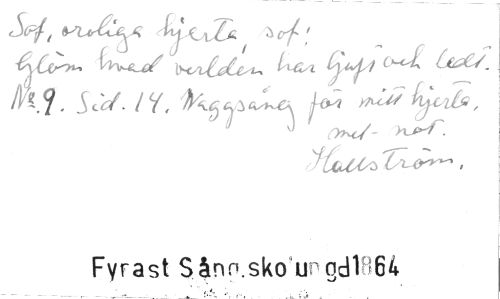 Sof, oroliga hjerta, sof!
Glöm hvad verlden har ljuft och ledt.
No. 9. Sid. 14. Vaggsång för mitt hjerta,
met not.
Hallström.
Fyrast Sång.sko'ungd1864